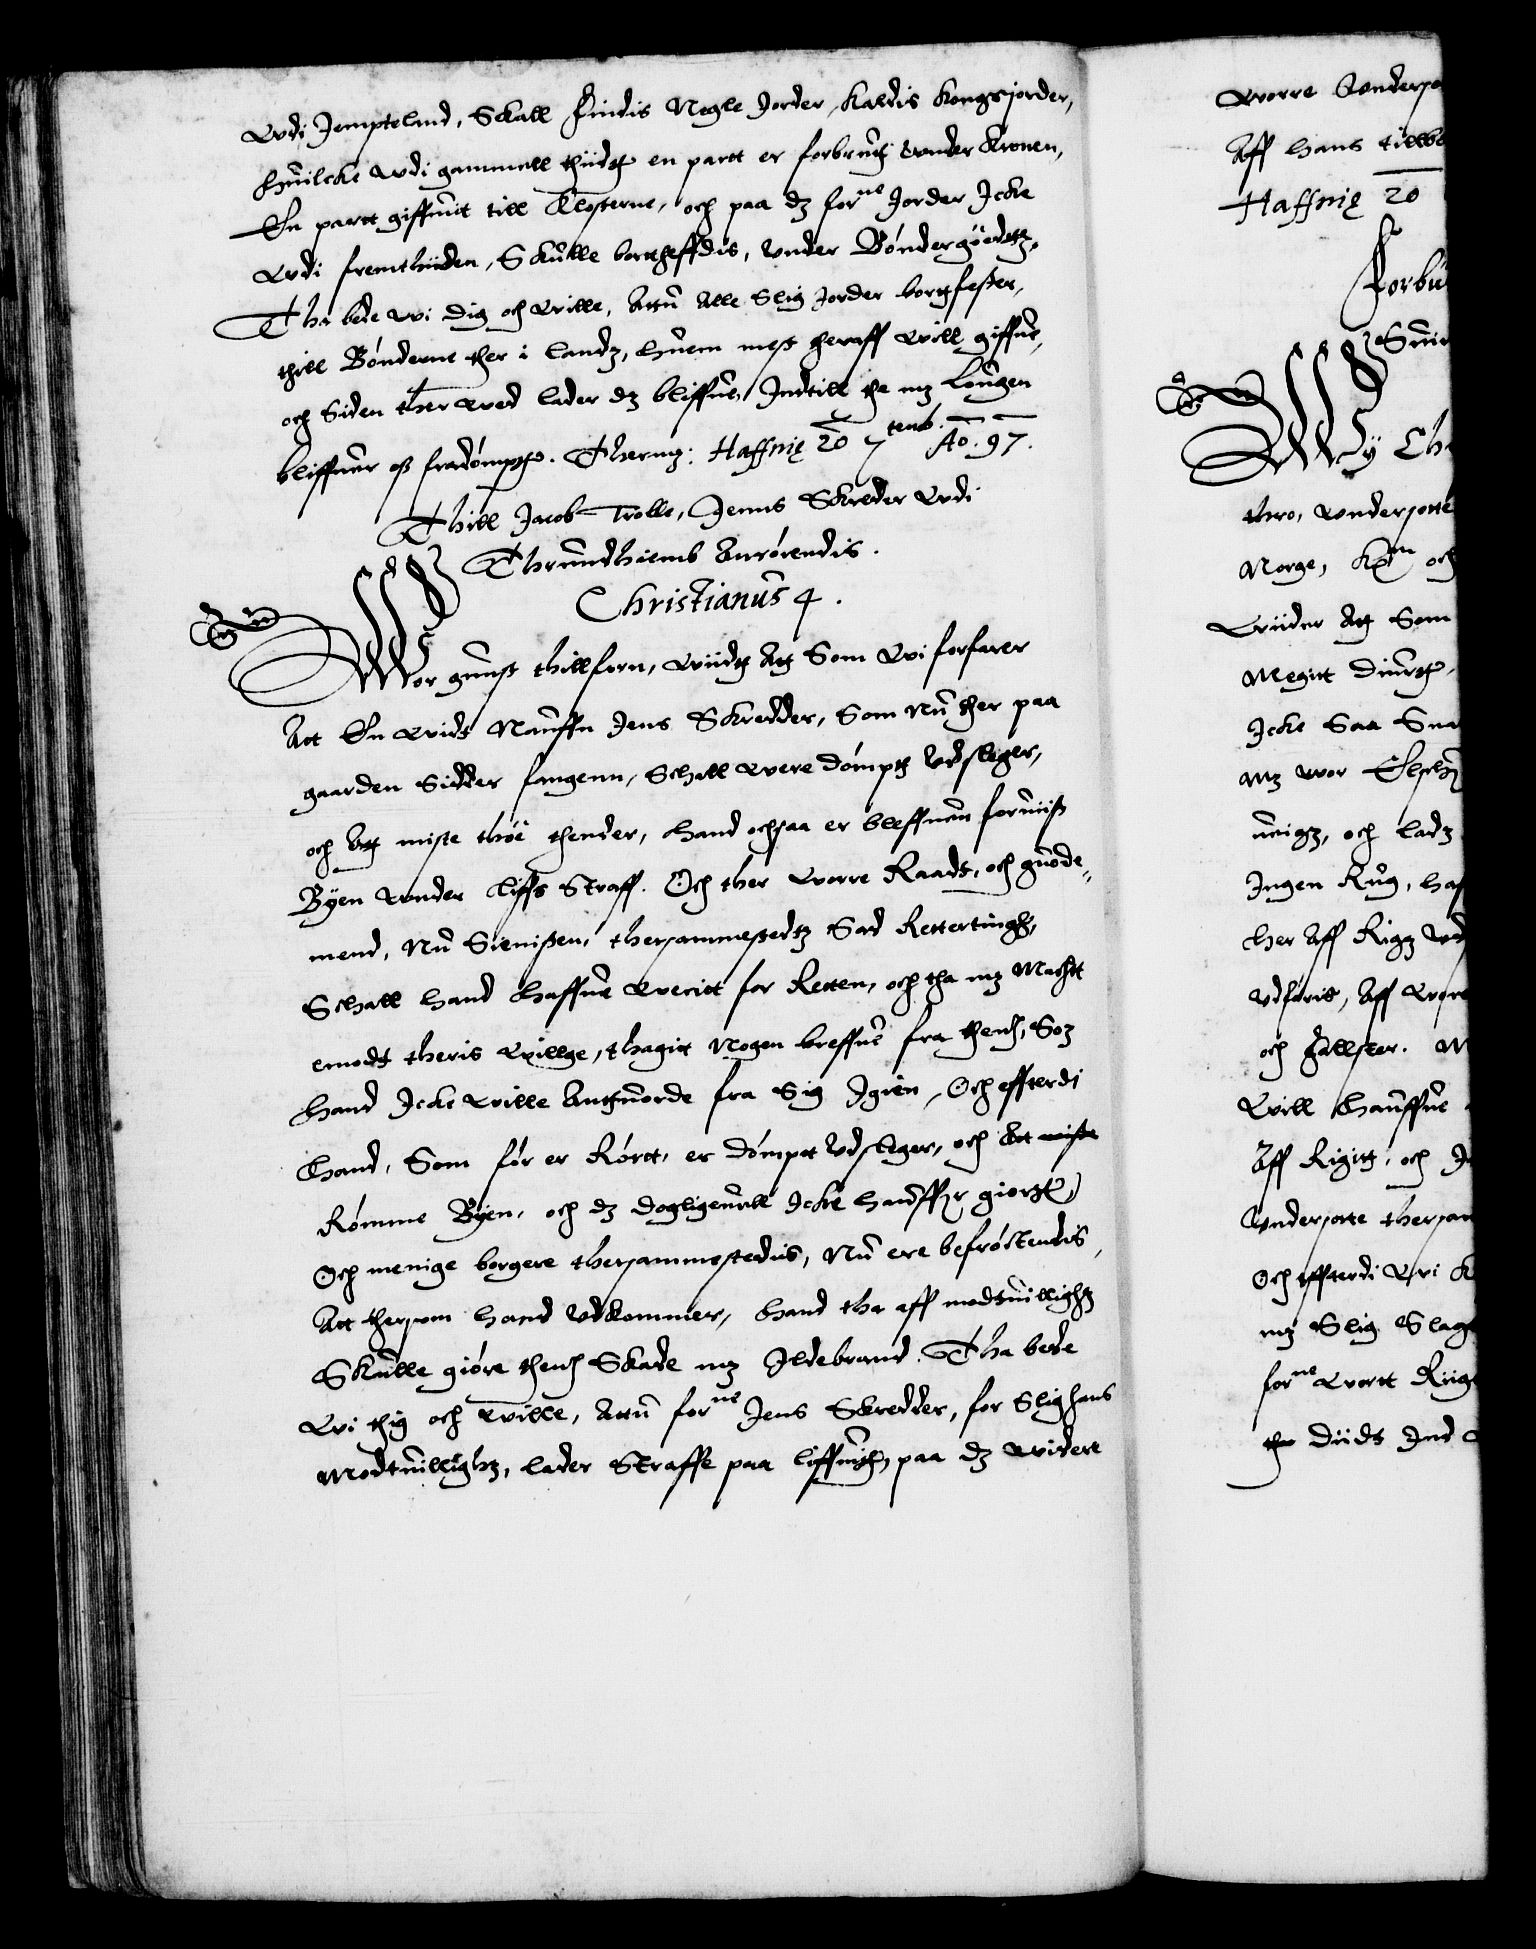 Wdi Jempteland, Skall findis Nogle Jorder, kaldis kongsjorder,
huilcke wdi gammell thiidt en partt er forbrugtt wnder Kronen,
En partt giffuit till Klosterne, och paa dz forne Jorder Icke
Wdi fremthiiden, Skulle bortheffdis, wnder Bóndergodtz,
Tha bede wi dig och Wille, Attu Alle Slig Jorder bortfester,
thill Bónderne ther i landz, huem mest theraff will giffue,
och Siden ther wed lader dz bliffue, Indtill the mz Lougen
bliffuer oss fradómptt. Thermz: Haffnię 20 7tenb. Ao. 97.
Thill Jacob Trolle, Jenns Skreder Wdi
Thrundhiemb Anrórendis.
Christianus 4.
Wor gunst thillforn, Wiidt Att Som Wi forfarer
Att En Wids Nauffn Jens Skredder, Som Nu ther paa
gaarden Sidder fangenn, Schall Were dómptt Vdsleger,
och Att miste thoe thender, hand ochsaa er bleffuen foruiist
Byen wnder liffs Straff. Och ther Worre Raadt, och gode
mend, Nu Sienisten, thersammestedtz Sad Rettertingh,
Schall hand haffue Weritt for Retten, och tha mz Machtt
emodt theris Willge, thagit Nogen breffue fra them, Som
hand Icke Wille Anttuorde fra Sig Igien, Och effterdi
hand, Som fór er Rórtt, er dómptt Vdsleger, och Att miste
Rómme Byen, och dz dogligeuell Icke haffuer giortt,
Och menige borgere thersammestedis, Nu ere befróctendis,
Att thersom hand Vdkommer, hand tha aff modtuillighz
Skulle gióre them Skade mz Ildebrand. Tha bede
Wi thig och Wille, Attu forne Jens Skredder, for Slig hans
Modtuillighz, lader Straffe paa liffuitt, paa dz Widere
Worre Vndersa
Aff hans tillbe
Haffnię 20
Forbu
Wy Ch
thro, Wndersotte
Norge, och
Wiider Att Som
Megitt diurtt,
Icke Saa Sna
Mz Wor
och ladz
Ingen Rug, ha
her Aff Rigz
Vdfórit, Aff Wor
och M
Will haffue
Aff Rigitt, och
Vndersotte thersam
Och effterdi Wi K
mz Slig Slag
forne Wortt Riig
the diidt Ind